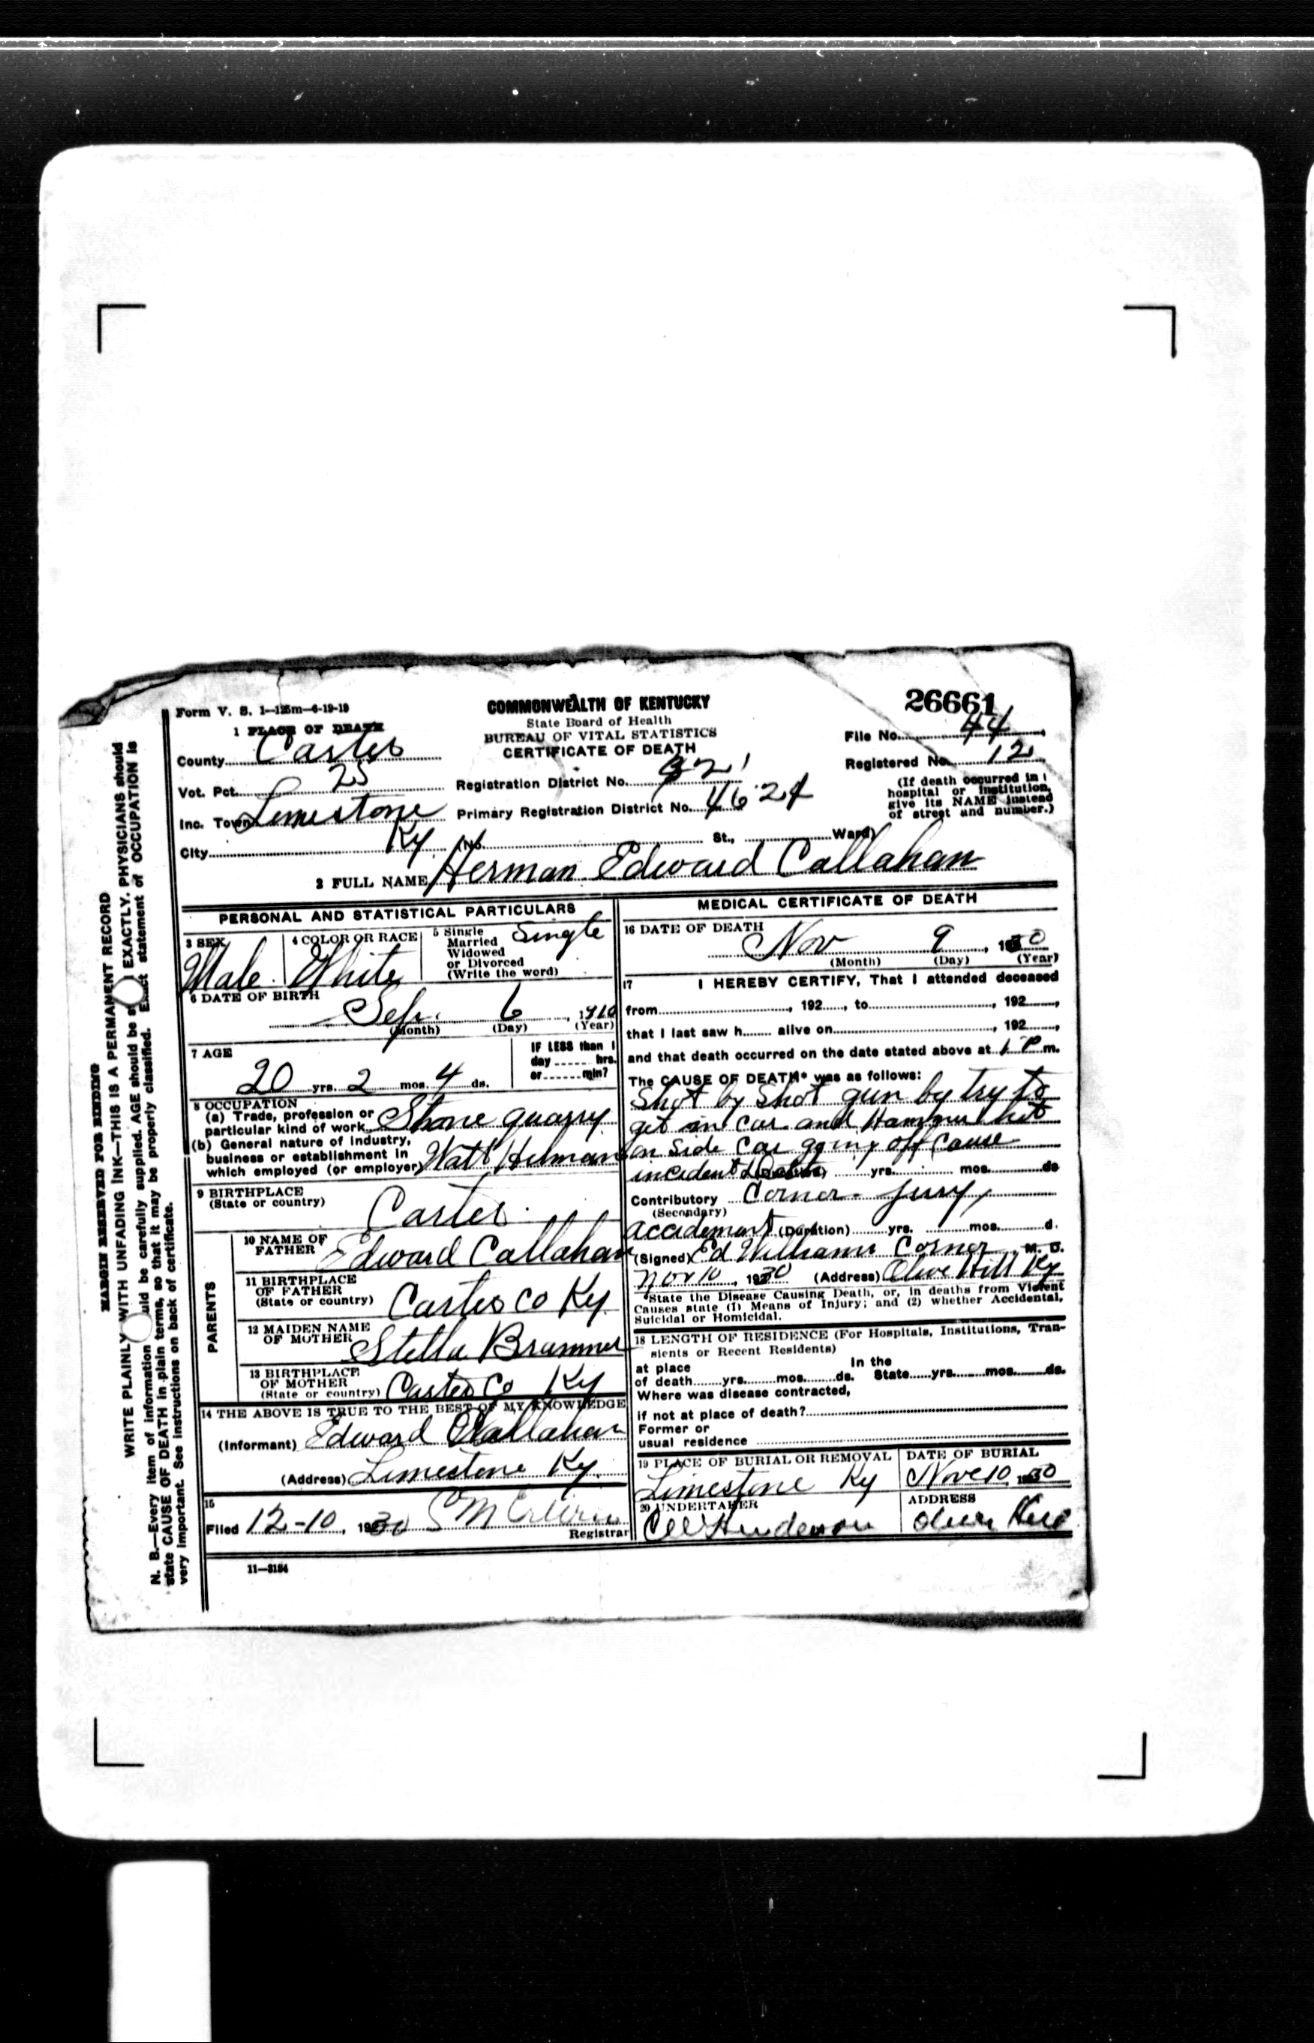 Form V. S. 1—125m—6-19-19
COMMONWEALTH OF KENTUCKY
State Board of Health
BUREAU OF VITAL STATISTICS
CERTIFICATE OF DEATH
26661
File No. 44
Registered No. 12
(If death occurred in a hospital or institution, give its NAME instead of street and number.)
1 PLACE OF DEATH
County Carter
Vot. Pct. 25
Registration District No. 921
Inc. Town Limestone
Primary Registration District No. 4624
City Ky. (No. St., Ward)
2 FULL NAME Herman Edward Callahan
PERSONAL AND STATISTICAL PARTICULARS
3 SEX Male
4 COLOR OR RACE White
5 Single Married Widowed or Divorced (Write the word) Single
6 DATE OF BIRTH
Sep. 6, 1910
(Month) (Day) (Year)
7 AGE
20 yrs. 2 mos. 4 ds.
IF LESS than 1 day hrs. or min?
8 OCCUPATION
(a) Trade, profession or particular kind of work Stone quarry
(b) General nature of industry, business or establishment in which employed (or employer) Watt
9 BIRTHPLACE
(State or country) Carter
PARENTS
10 NAME OF FATHER Edward Callahan
11 BIRTHPLACE OF FATHER (State or country) Carter Co Ky.
12 MAIDEN NAME OF MOTHER Stella Brammer
13 BIRTHPLACE OF MOTHER (State or country) Carter Co Ky
14 THE ABOVE IS TRUE TO THE BEST OF MY KNOWLEDGE
(Informant) Edward Callahan
(Address) Limestone Ky.
15
Filed 12-10, 1930
Registrar
11—3184
MEDICAL CERTIFICATE OF DEATH
16 DATE OF DEATH
Nov 9, 1930
(Month) (Day) (Year)
17 I HEREBY CERTIFY, That I attended deceased
from , 192 , to , 192 ,
that I last saw h alive on , 192 ,
and that death occurred on the date stated above at 1 P m.
The CAUSE OF DEATH* was as follows:
Shot by Shot gun by try to
get in car and Hammer hit
on side car going off Cause
incident Death (Duration) yrs. mos. ds
Contributory Corner. jury,
(Secondary)
(Duration) yrs. mos. d.
(Signed) Ed Williams Corner, M. D.
Nov 10, 1930 (Address) Olive Hill Ky
*State the Disease Causing Death, or, in deaths from Violent
Causes state (1) Means of Injury; and (2) whether Accidental,
Suicidal or Homicidal.
18 LENGTH OF RESIDENCE (For Hospitals, Institutions, Tran-
sients or Recent Residents)
at place of death yrs. mos. ds. In the State yrs. mos. ds.
Where was disease contracted,
if not at place of death?
Former or
usual residence
19 PLACE OF BURIAL OR REMOVAL
Limestone Ky
DATE OF BURIAL
Nov 10, 1930
20 UNDERTAKER
Henderson
ADDRESS
Olive Hill
MARGIN RESERVED FOR BINDING
WRITE PLAINLY WITH UNFADING INK—THIS IS A PERMANENT RECORD
N. B.—Every item of information should be carefully supplied. AGE should be stated EXACTLY. PHYSICIANS should
state CAUSE OF DEATH in plain terms, so that it may be properly classified. Exact statement of OCCUPATION is
very important. See instructions on back of certificate.